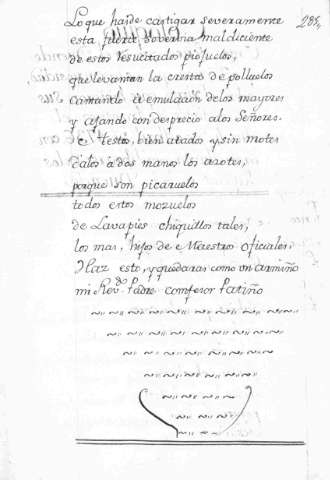 285,
Lo que ha de castigar severamente
esta fuerte soberna maldiciente
de estos resucitados piojuelos,
que levantan la cresta de polluelos
cantando à emulacion de los mayores
y ajando con desprecio a los Señores.
A estos, bien atados y sin motes
dales a dos manos los azotes,
porque son picaruelos
todos estos mozuelos
de Lavapies chiquillos tales,
los mas, hijos de Maestros oficiales.
Haz esto, y quedaras como un armiño
mi Rev.do Padre comfesor Patiño